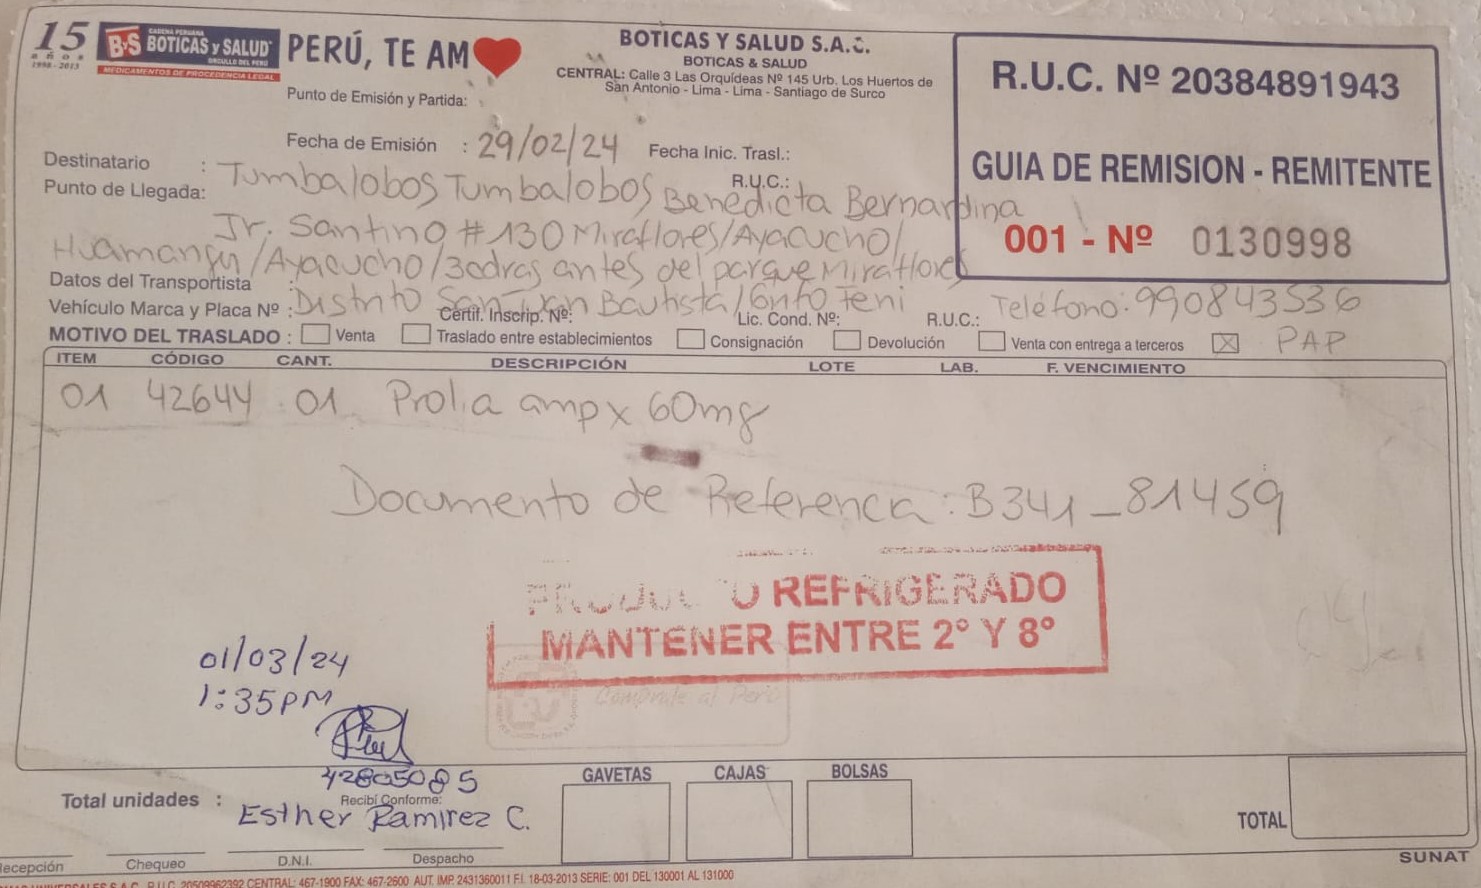 15 años 1998 - 2013
CADENA PERUANA
ByS BOTICAS y SALUD
ORGULLO DEL PERÚ
MEDICAMENTOS DE PROCEDENCIA LEGAL
PERÚ, TE AM
BOTICAS Y SALUD S.A.C.
BOTICAS & SALUD
CENTRAL: Calle 3 Las Orquídeas Nº 145 Urb. Los Huertos de
San Antonio - Lima - Lima - Santiago de Surco
R.U.C. Nº 20384891943
GUIA DE REMISION - REMITENTE
001 - Nº 0130998
Punto de Emisión y Partida:
Fecha de Emisión : 29/02/24 Fecha Inic. Trasl.:
Destinatario : Tumbalobos Tumbalobos Benedicta Bernardina R.U.C.:
Punto de Llegada: Jr. Santino #130 Miraflores/Ayacucho/
Huamanga/Ayacucho/3cdras antes del parque Miraflores
Datos del Transportista :
Vehículo Marca y Placa Nº : Distrito San Juan Bautista/ Teléfono: 990843536
Certif. Inscrip. Nº: Lic. Cond. Nº: R.U.C.:
MOTIVO DEL TRASLADO : Venta Traslado entre establecimientos Consignación Devolución Venta con entrega a terceros X PAP
ITEM CÓDIGO CANT. DESCRIPCIÓN LOTE LAB. F. VENCIMIENTO
01 42644 01 Prolia amp x 60mg
Documento de Referencia: B341_81459
PRODUCTO REFRIGERADO
MANTENER ENTRE 2° Y 8°
Cómprale al Perú
01/03/24
1:35PM
42805085
GAVETAS CAJAS BOLSAS
Total unidades : Recibí Conforme:
Esther Ramirez C.
TOTAL
Recepción Chequeo D.N.I. Despacho
SUNAT
UNIVERSALES S.A.C. R.U.C. 20509962392 CENTRAL: 467-1900 FAX: 467-2600 AUT. IMP. 2431360011 F.I. 18-03-2013 SERIE: 001 DEL 130001 AL 131000